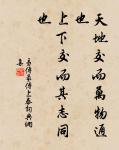 天地交而萬物通
也
上下交而其志同
也
易傳彖傳上泰詞典網
集